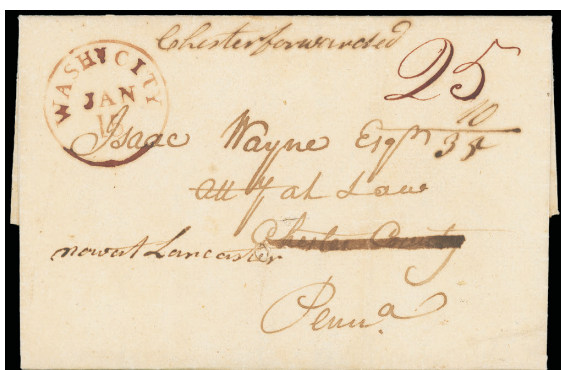 Chester forwarded
WASHN CITY
JAN
25
10
35
Isaac Wayne Esqr
Atty at Law
Chester County
now at Lancaster
Penna